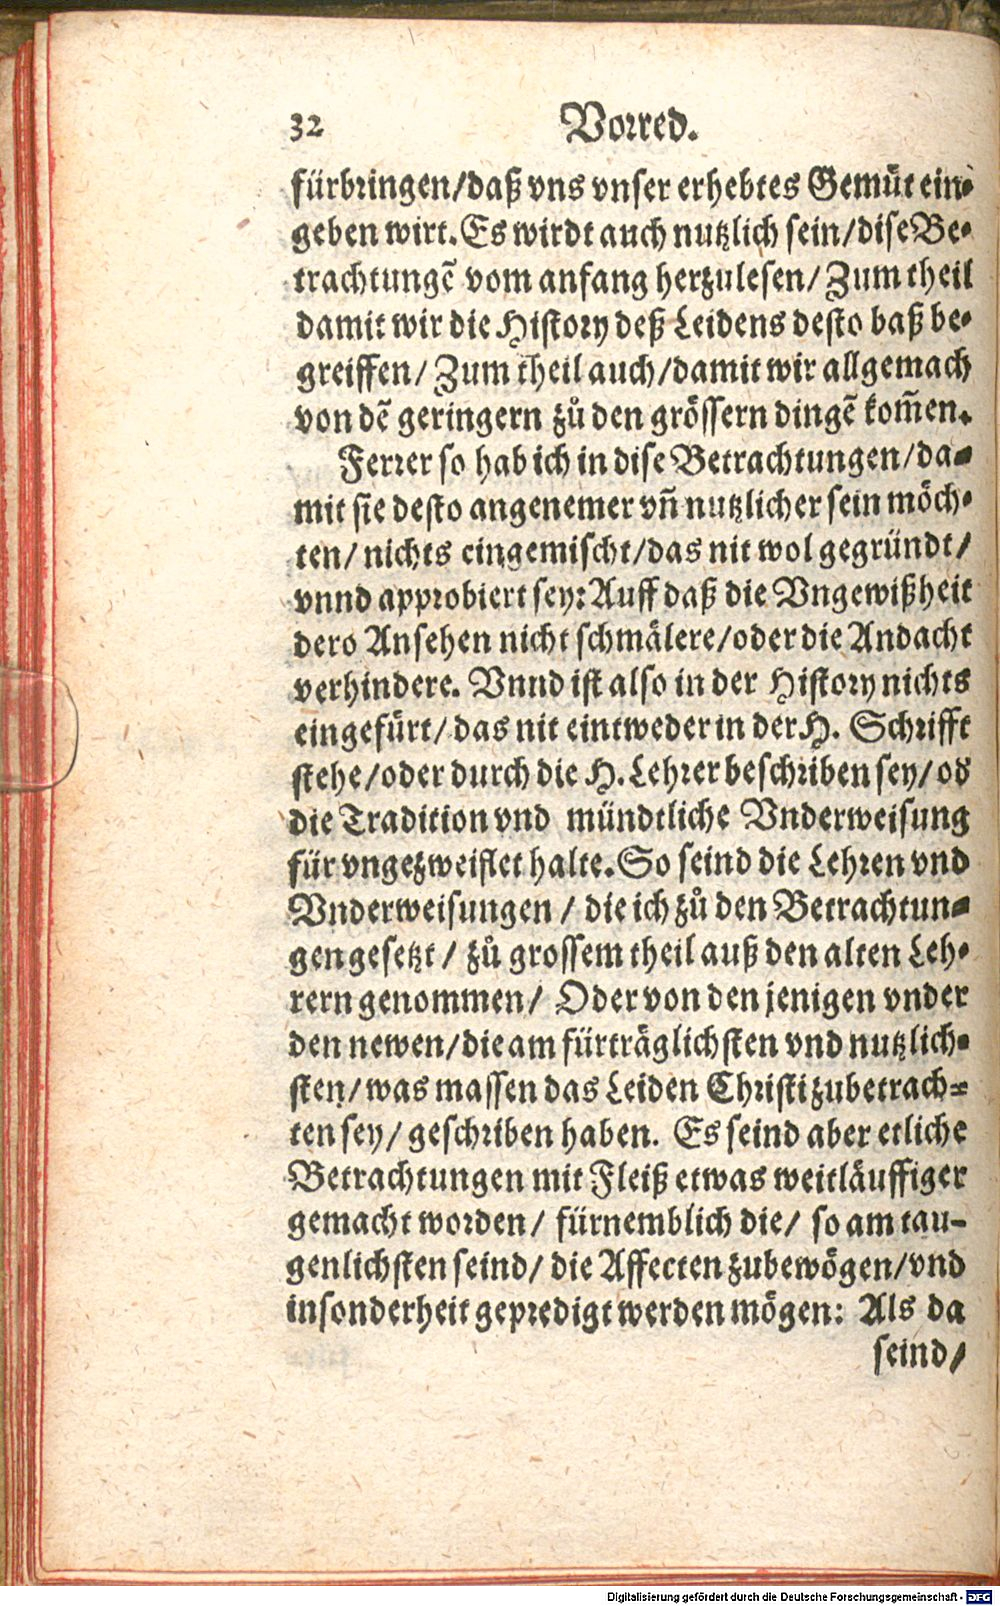 32 Vorred.
fürbringen/daß vns vnser erhebtes Gemüt ein-
geben wirt. Es wirdt auch nutzlich sein/dise Be-
trachtungẽ vom anfang herzulesen/ Zum theil
damit wir die History deß Leidens desto baß be-
greiffen/ Zum theil auch/damit wir allgemach
von dẽ geringern zů den grössern dingẽ kom̃en.
Ferrer so hab ich in dise Betrachtungen/da-
mit sie desto angenemer vñ nutzlicher sein möch-
ten/ nichts eingemischt/das nit wol gegründt/
vnnd approbiert sey: Auff daß die Vngewißheit
dero Ansehen nicht schmälere/oder die Andacht
verhindere. Vnnd ist also in der History nichts
eingefürt/ das nit eintweder in der H. Schrifft
stehe/oder durch die H. Lehrer beschriben sey/ od
die Tradition vnd mündtliche Vnderweisung
für vngezweiflet halte. So seind die Lehren vnd
Vnderweisungen / die ich zů den Betrachtun-
gen gesetzt / zů grossem theil auß den alten Leh-
rern genommen/ Oder von den jenigen vnder
den newen/die am fürträglichsten vnd nutzlich-
sten/was massen das Leiden Christi zubetrach-
ten sey/ geschriben haben. Es seind aber etliche
Betrachtungen mit Fleiß etwas weitläuffiger
gemacht worden/ fürnemblich die/ so am tau-
genlichsten seind/ die Affecten zubewögen/vnd
insonderheit geprediget werden mögen: Als da
seind/
Digitalisierung gefördert durch die Deutsche Forschungsgemeinschaft - DFG